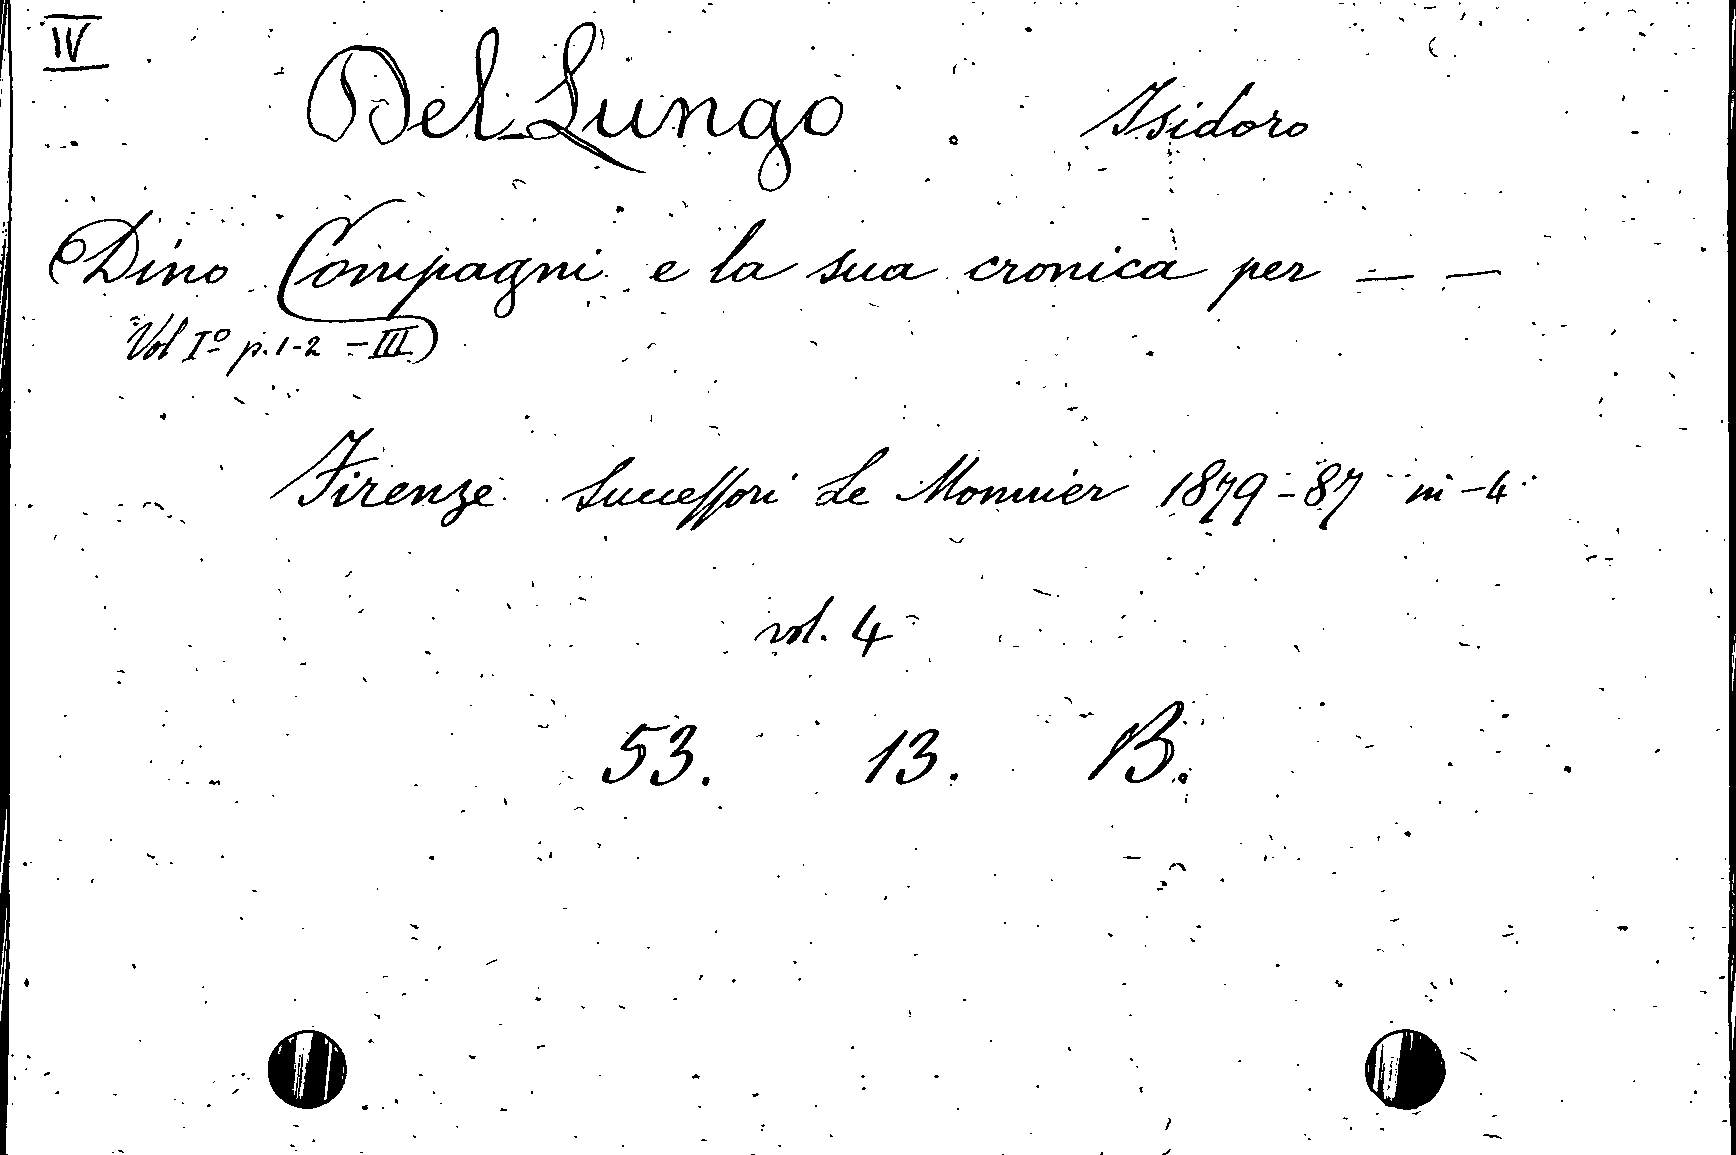 IV
Del Lungo Isidoro
Dino Compagni e la sua cronica per — —
Vol Iº p. 1-2 - III
Firenze Successori Le Monnier 1879-87 in-4
vol. 4
53. 13. B.